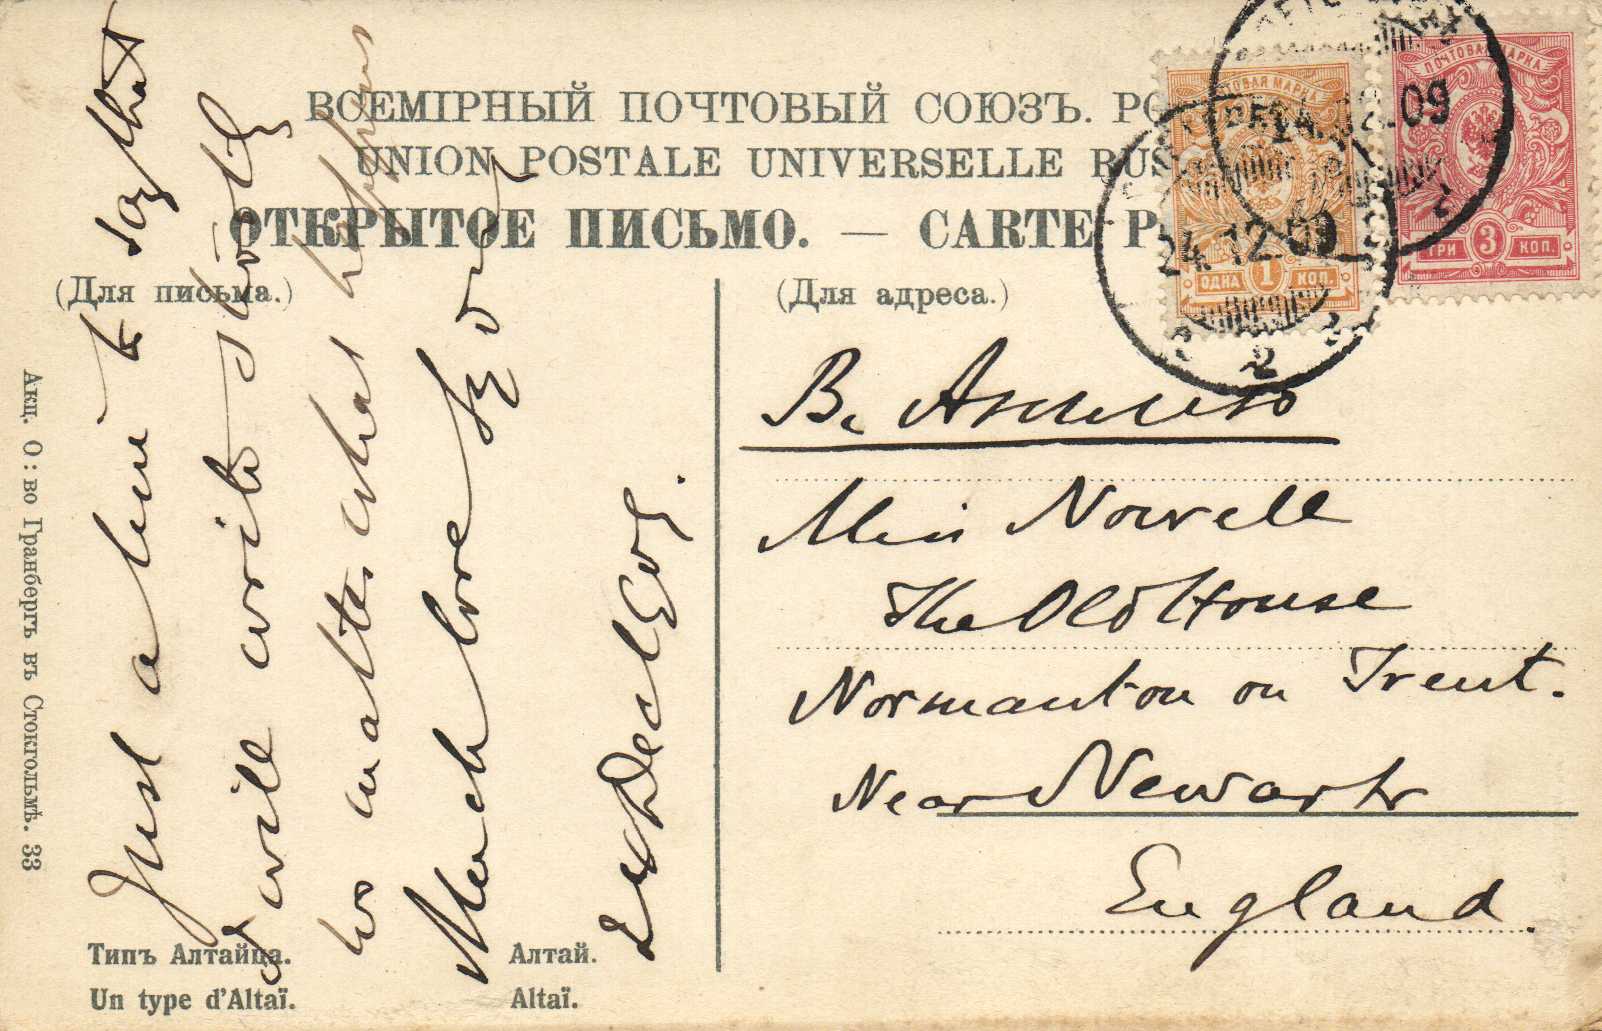 ВСЕМІРНЫЙ ПОЧТОВЫЙ СОЮЗЪ. РО
UNION POSTALE UNIVERSELLE RUS
ОТКРЫТОЕ ПИСЬМО. — CARTE P
(Для письма.)
(Для адреса.)
ПОЧТОВАЯ МАРКА
ОДНА 1 КОП.
ПОЧТОВАЯ МАРКА
ТРИ 3 КОП.
24.12.09
2
.09
Just a line to say that
I will write shortly
no matter what happens
Much love
24 Dec 1909.
В. Англію
Miss Nowell
The Old House
Normanton on Trent.
Near Newark
England
Типъ Алтайца.
Un type d'Altaï.
Алтай.
Altaï.
Акц. О: во Гранбергъ въ Стокгольмѣ. 33